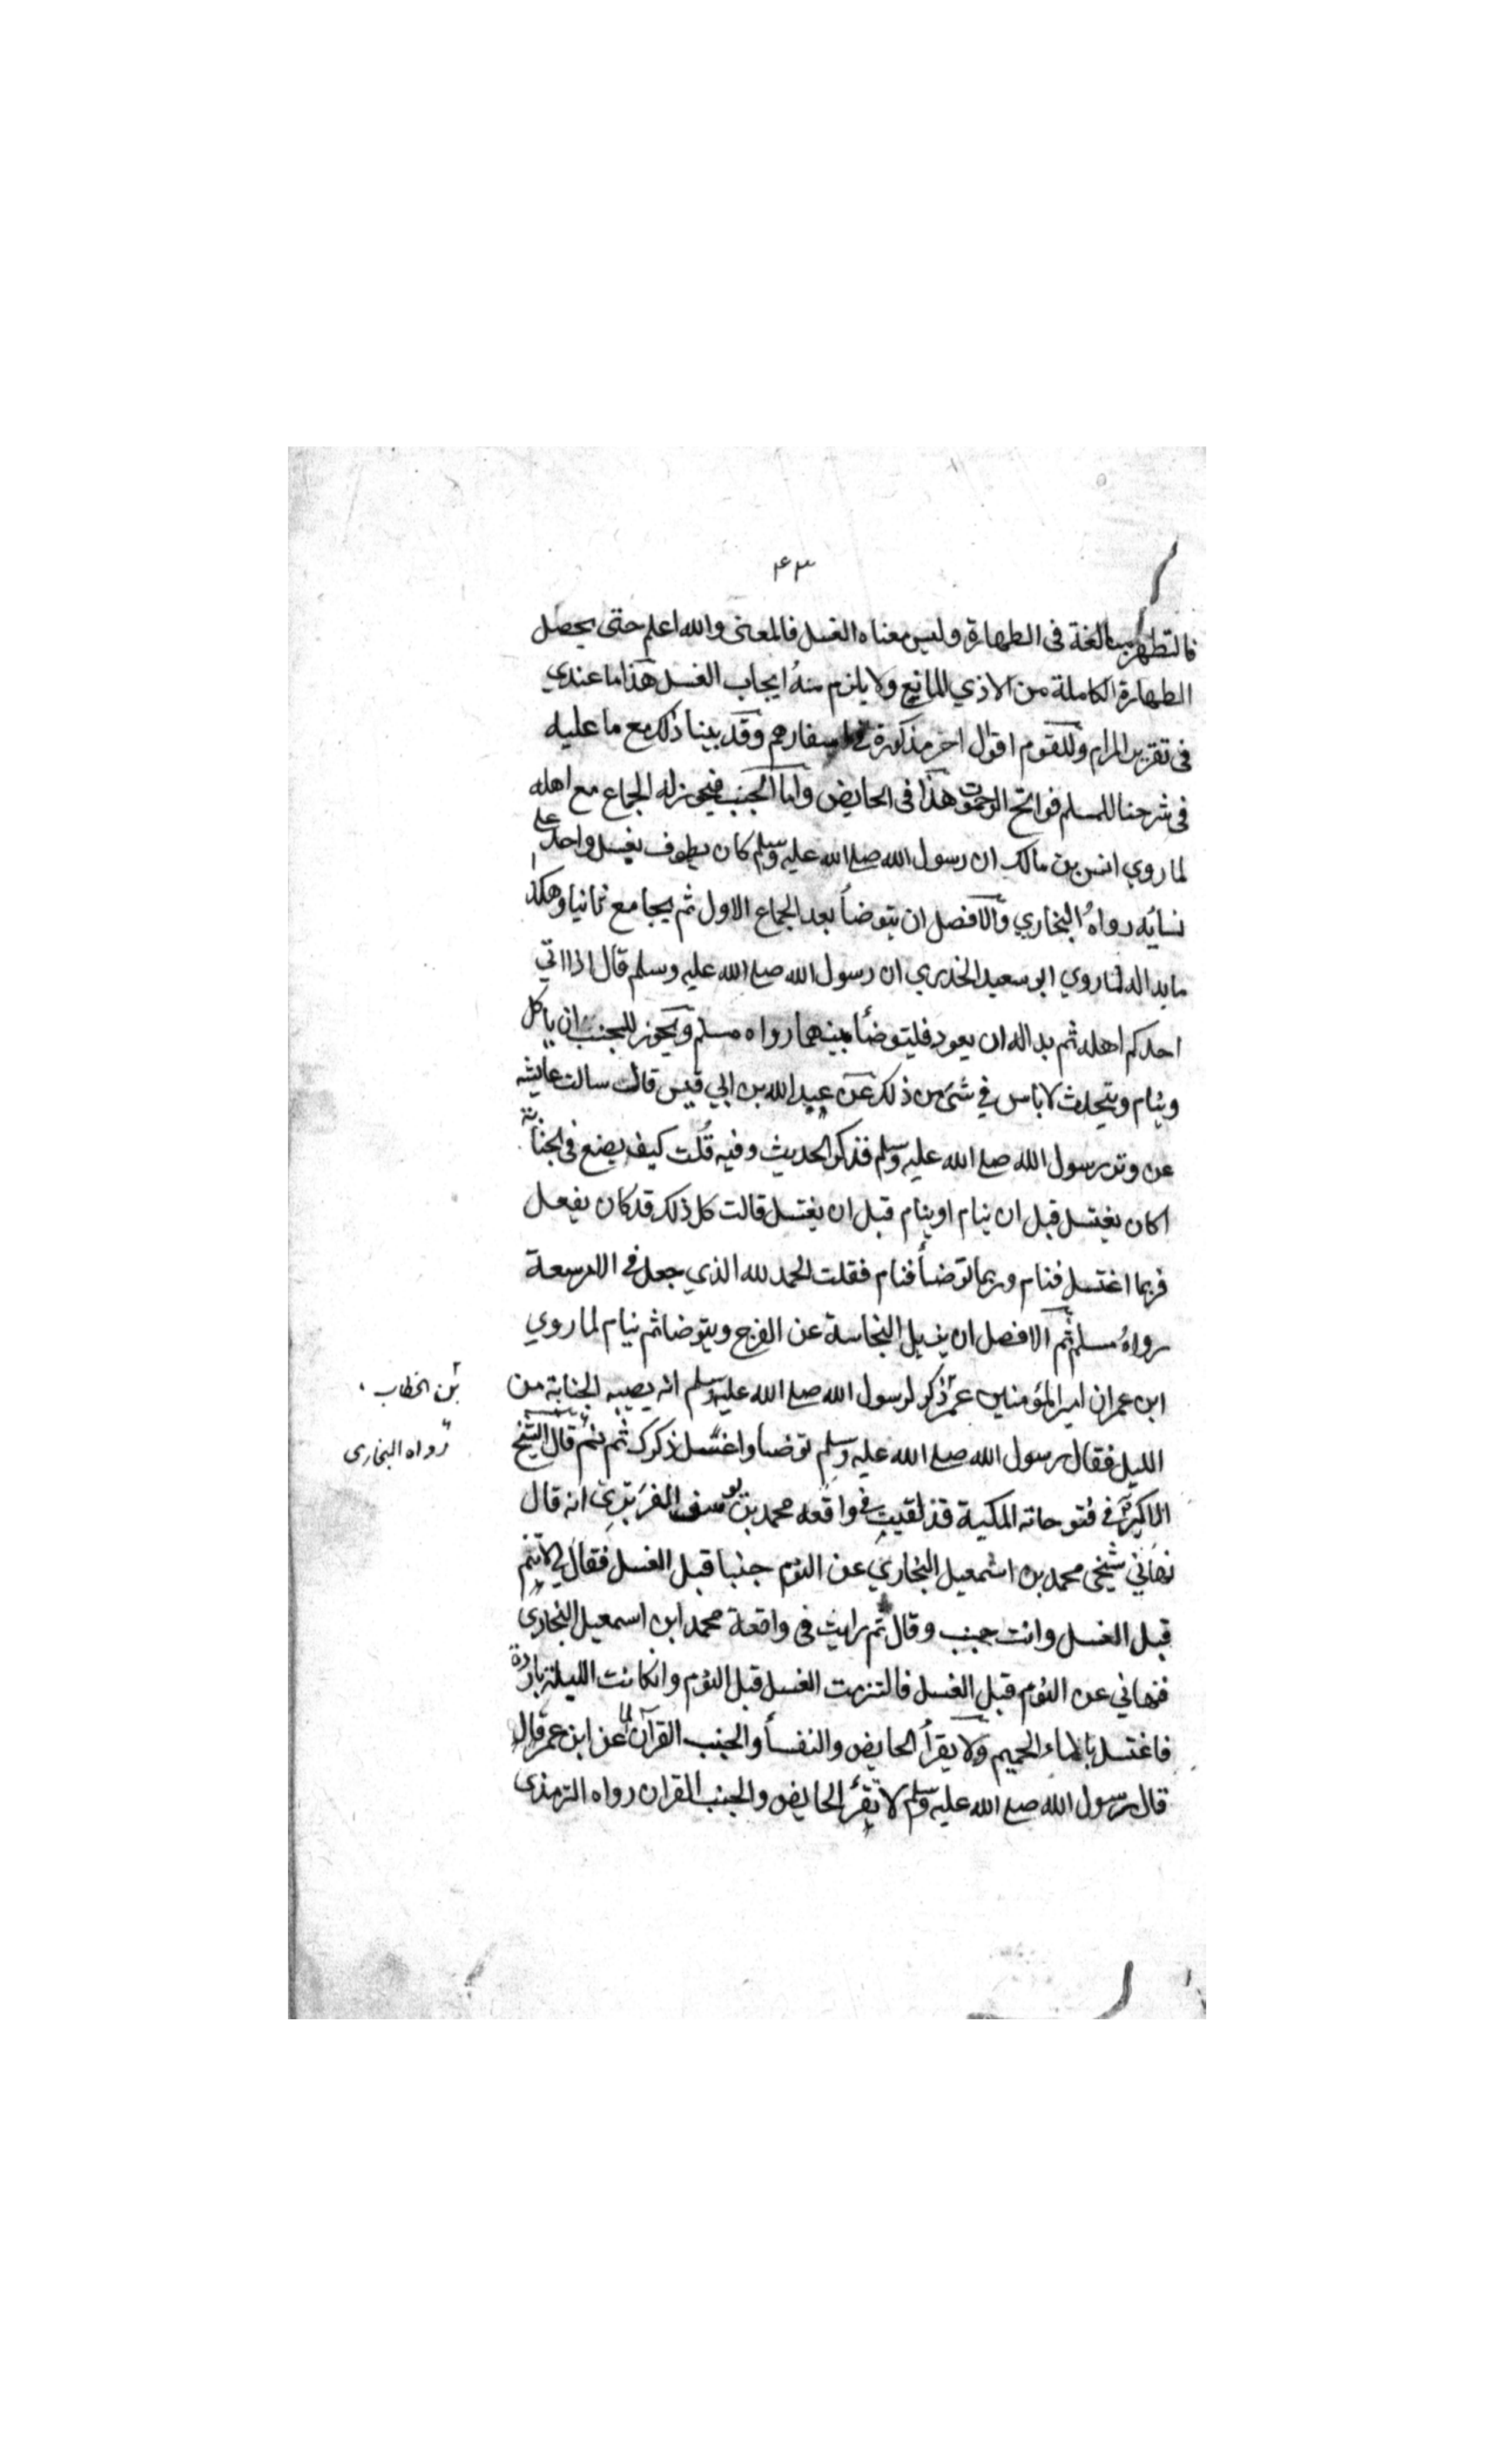 ۴۳
فالتطهر مبالغة فى الطهارة وليس معناه الغسل فالمعنى والله اعلم حتى يحصل
الطهارة الكاملة من الاذي المانع ولا يلزم منهُ ايجاب الغسل هذا ما عندي
فى تقرير المرام وللقوم اقوال اخر مذكورة فى اسفارهم وقد بينا ذلك مع ما عليه
فى شرحنا للمسلم فواتح الرحموت هذا فى الحايض واما الجنب فيجوز له الجماع مع اهله
لما روي انس بن مالك ان رسول الله صلى الله عليه وسلم كان يطوف بغسل واحد على
نسايه رواهُ البخاري والافضل ان يتوضأ بعد الجماع الاول ثم يجامع ثانيا وهكذا
ما بدا له لما روي ابو سعيد الخدري ان رسول الله صلى الله عليه وسلم قال اذا اتي
احدكم اهله ثم بدا له ان يعود فليتوضأ بينهما رواه مسلم ويجوز للجنب ان ياكل
وينام ويتحدث لا باس في شئ من ذلك عن عبد الله بن ابي قيس قال سالت عايشه
عن وتر رسول الله صلى الله عليه وسلم فذكر الحديث وفيه قُلت كيف يصنع فى الجنابة
اكان يغتسل قبل ان ينام او ينام قبل ان يغتسل قالت كل ذلك قد كان يفعل
فربما اغتسل فنام وربما توضأ فنام فقلت الحمد لله الذي جعل فى الامر سعة
رواهُ مسلم ثم الافضل ان يزيل النجاسة عن الفرج ويتوضا ثم ينام لما روي
ابن عمر ان امير المؤمنين عمر ذكر لرسول الله صلى الله عليه وسلم انه يصيبه الجنابة من
بن الخطاب
الليل فقال رسول الله صلى الله عليه وسلم توضا واغسل ذكرك ثم نم قال الشيخ
رواه البخارى
الاكبر فى فتوحاته المكية قد لقيت فى واقعه محمد بن يوسف الفربرى انه قال
نهاني شيخى محمد بن اسمعيل البخاري عن النوم جنبا قبل الغسل فقال لي لا تنم
قبل الغسل وانت جنب وقال ثم رايت فى واقعة محمد ابن اسمعيل البخارى
فنهاني عن النوم قبل الغسل فالتزمت الغسل قبل النوم وان كانت الليلة باردة
فاغتسل بالماء الحميم ولا يقرأ الحايض والنفسأ والجنب القرآن لما عن ابن عمر قال
قال رسول الله صلى الله عليه وسلم لا تقرأ الحايض والجنب القران رواه الترمذى